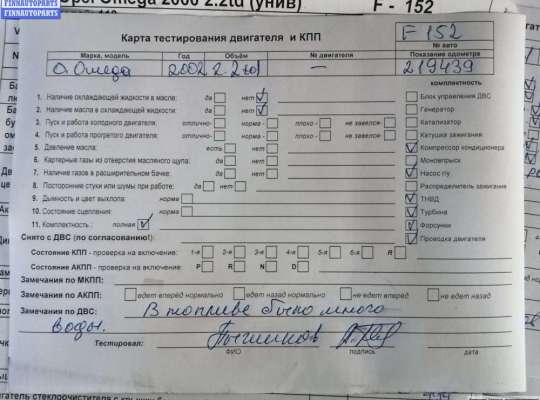 FINNAUTOPARTS
Opel Omega 2000 2.2td (унив) F - 152
Карта тестирования двигателя и КПП F 152
№ авто
Марка, модель Год Объём № двигателя Показание одометра
O. Омеда 2002 2.2td — 219439
комплектность
1. Наличие охлаждающей жидкости в масле: да нет Блок управления ДВС
2. Наличие масла в охлаждающей жидкости: да нет Генератор
3. Пуск и работа холодного двигателя: отлично- норма - плохо - не завелся- Катализатор
4. Пуск и работа прогретого двигателя: отлично- норма - плохо - не завелся- Катушка зажигания
5. Давление масла: есть нет Компрессор кондиционера
6. Картерные газы из отверстия масляного щупа: да нет Моновпрыск
7. Наличие газов в расширительном бачке: да нет Насос г\у
8. Посторонние стуки или шумы при работе: да нет Распределитель зажигания
9. Дымность и цвет выхлопа: норма ТНВД
10. Состояние сцепления: норма Турбина
11. Комплектность : полная Форсунки
Снято с ДВС (по согласованию!): Проводка двигателя
Состояние КПП - проверка на включение: 1-я 2-я 3-я 4-я 5-я 6-я
Состояние АКПП - проверка на включение: P R N D
Замечания по МКПП:
Замечания по АКПП: едет вперед нормально едет назад нормально не едет вперед не едет назад
Замечания по ДВС: В топливе было много
воды.
Тестировал:
ФИО подпись дата